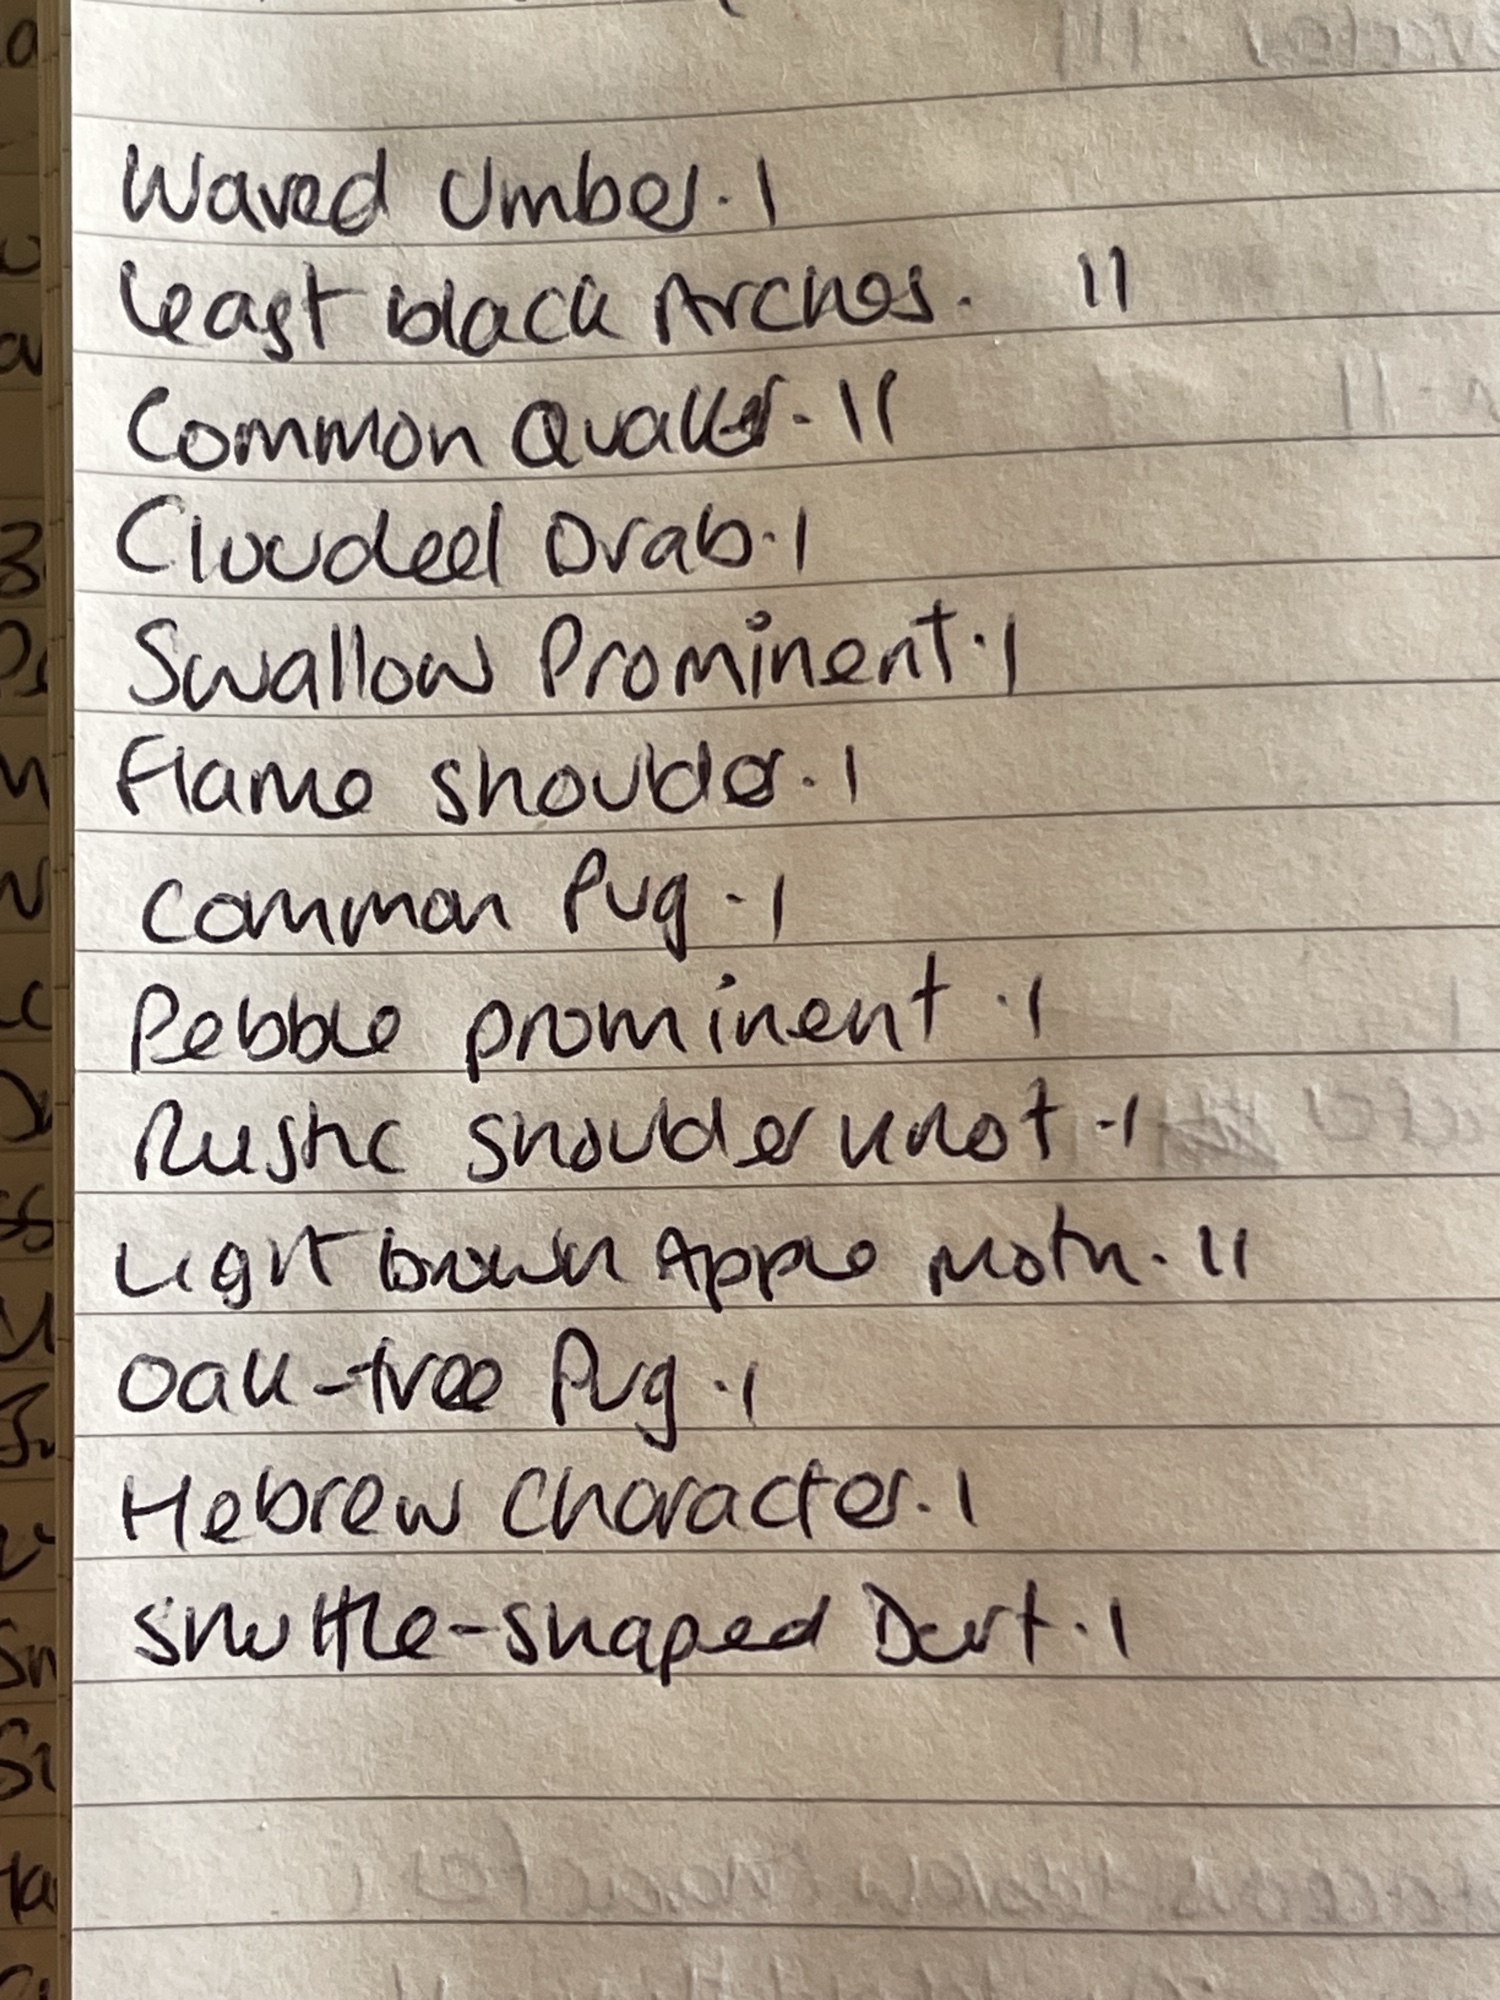 Waved Umber. I
Least black Arches. II
Common Quaker - II
Clouded Drab. I
Swallow Prominent. I
Flame shoulder. I
Common Pug - I
Pebble prominent . I
Rustic shoulder knot - I
Light brown Apple Moth. II
Oak-tree Pug . I
Hebrew Character. I
Shuttle-shaped Dart. I